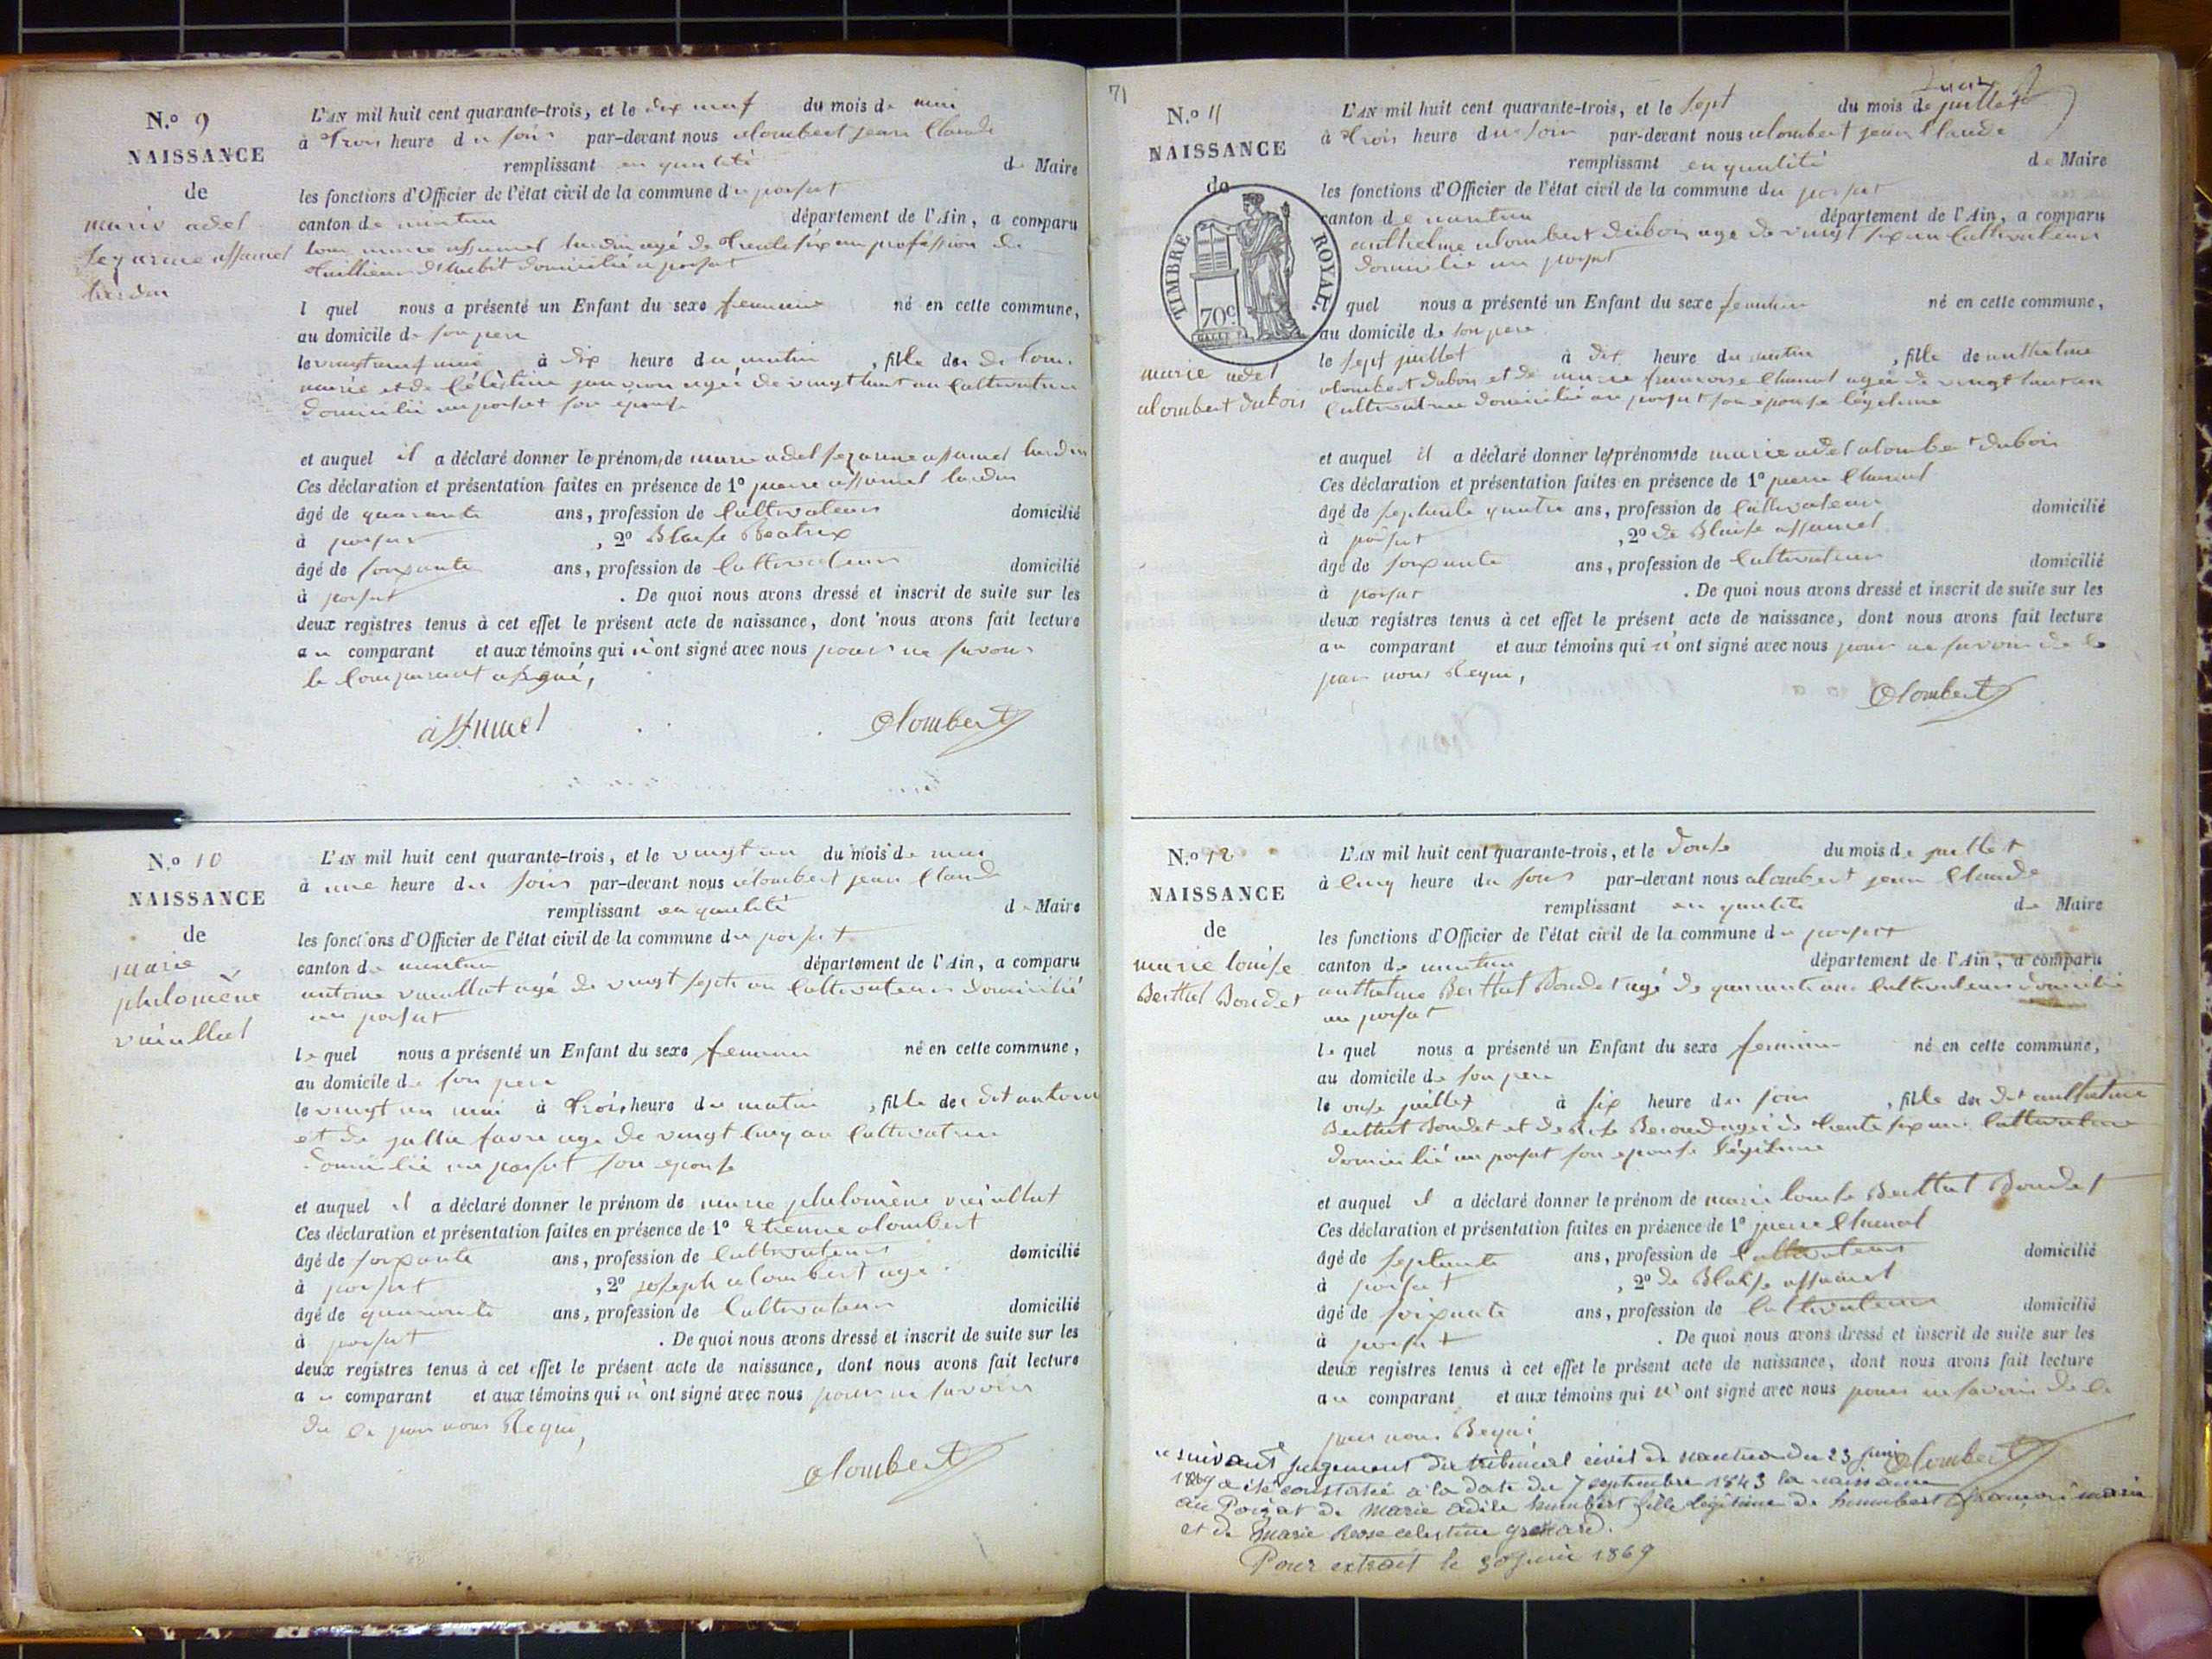 N.o 9
NAISSANCE
de
marie adel
assamel
L'AN mil huit cent quarante-trois, et le dix neuf du mois de mai
à trois heure du soir par-devant nous alombert jean Claude
remplissant en qualité de Maire
les fonctions d'Officier de l'état civil de la commune du poisat
canton de nantua département de l'Ain, a comparu
assamel agé de trente six an profession de
d'habit domicilié a poisat
l quel nous a présenté un Enfant du sexe feminin né en cette commune,
au domicile de son pere
le mai à dix heure du matin , fille de
marie et de Célèstine agée de vingt huit an Cultivatrice
domicilié au poisat son epouse
et auquel il a déclaré donner le prénom, de marie adel assamel
Ces déclaration et présentation faites en présence de 1o pierre assamel
âgé de quarante ans, profession de Cultivateur domicilié
à poisat , 2o Blaise Beatrix
âgé de soixante ans, profession de Cultivateur domicilié
à poisat . De quoi nous avons dressé et inscrit de suite sur les
deux registres tenus à cet effet le présent acte de naissance, dont nous avons fait lecture
au comparant et aux témoins qui n'ont signé avec nous pour ne savoir
le Comparant a signé,
assamel alombert
N.o 10
NAISSANCE
de
marie
philomène
L'AN mil huit cent quarante-trois, et le vingt un du mois de mai
à une heure du soir par-devant nous alombert jean Claude
remplissant en qualité de Maire
les fonctions d'Officier de l'état civil de la commune du poisat
canton de nantua département de l'Ain, a comparu
antoine agé de vingt sept an Cultivateur domicilié
au poisat
le quel nous a présenté un Enfant du sexe feminin né en cette commune,
au domicile de son pere
le vingt un mai à trois heure du matin , fille de dit antoine
et de favre age de vingt Cinq an Cultivatrice
domicilié au poisat son epouse
et auquel il a déclaré donner le prénom de marie philomène
Ces déclaration et présentation faites en présence de 1o Etienne alombert
âgé de soixante ans, profession de Cultivateur domicilié
à poisat , 2o joseph alombert agé
âgé de quarante ans, profession de Cultivateur domicilié
à poisat . De quoi nous avons dressé et inscrit de suite sur les
deux registres tenus à cet effet le présent acte de naissance, dont nous avons fait lecture
au comparant et aux témoins qui n'ont signé avec nous pour ne savoir
de ce par nous Requi,
alombert
71
N.o 11
NAISSANCE
de
TIMBRE ROYAL.
70c
marie adel
alombert dubois
L'AN mil huit cent quarante-trois, et le sept du mois de juillet
à trois heure du soir par-devant nous alombert jean Claude
remplissant en qualité de Maire
les fonctions d'Officier de l'état civil de la commune du poisat
canton de nantua département de l'Ain, a comparu
anthelme alombert dubois age de vingt six an Cultivateur
domicilié au poisat
quel nous a présenté un Enfant du sexe feminin né en cette commune,
au domicile de son pere
le sept juillet à dix heure du matin , fille de anthelme
alombert dubois et de marie francoise Chanal agée de vingt huit an
Cultivatrice domicilié au poisat son epouse légitime
et auquel il a déclaré donner les prénoms de marie adel alombert dubois
Ces déclaration et présentation faites en présence de 1o pierre Chanal
âgé de septante quatre ans, profession de Cultivateur domicilié
à poisat , 2o de Blaise assamel
âgé de soixante ans, profession de Cultivateur domicilié
à poisat . De quoi nous avons dressé et inscrit de suite sur les
deux registres tenus à cet effet le présent acte de naissance, dont nous avons fait lecture
au comparant et aux témoins qui n'ont signé avec nous pour ne savoir de ce
par nous Requi,
alombert
N.o 12
NAISSANCE
de
marie louise
Berthet Bondet
L'AN mil huit cent quarante-trois, et le douse du mois de juillet
à Cinq heure du soir par-devant nous alombert jean Claude
remplissant en qualité de Maire
les fonctions d'Officier de l'état civil de la commune du poisat
canton de nantua département de l'Ain, a comparu
anthelme Berthet Bondet agé de quarante ans Cultivateur domicilié
au poisat
le quel nous a présenté un Enfant du sexe feminin né en cette commune,
au domicile de son pere
le onse juillet à six heure du soir , fille du dit anthelme
Berthet Bondet et de Rose Beroud agée de trente six ans Cultivatrice
domicilié au poisat son epouse légitime
et auquel il a déclaré donner le prénom de marie louise Berthet Bondet
Ces déclaration et présentation faites en présence de 1o pierre Chanal
âgé de septante ans, profession de Cultivateur domicilié
à poisat , 2o de Blaise assamel
âgé de soixante ans, profession de Cultivateur domicilié
à poisat . De quoi nous avons dressé et inscrit de suite sur les
deux registres tenus à cet effet le présent acte de naissance, dont nous avons fait lecture
au comparant et aux témoins qui n'ont signé avec nous pour ne savoir de ce
par nous Requi
alombert
suivant jugement du tribunal civil de nantua du 23 juin
1869 a été constatée à la date du 7 septembre 1843 la naissance
au Poizat de Marie Adèle humbert fille légitime de humbert françois marie
et de Marie Rose celestine
Pour extrait le 30 juin 1869